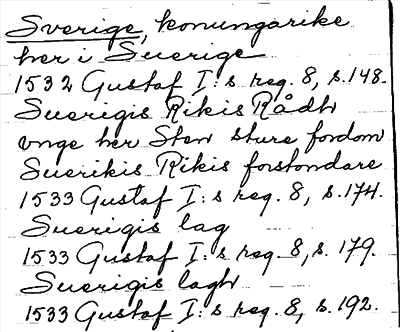 Sverige, konungarike
her i Suerige
1532 Gustaf I:s reg. 8, s. 148.
Suerigis Rikis Rådh
vnge her Sten Sture fordom
Suerikis Rikis forstondare
1533 Gustaf I:s reg. 8, s. 174.
Suerigis lag
1533 Gustaf I:s reg. 8, s. 179.
Suerigis lagh
1533 Gustaf I:s reg. 8, s. 192.